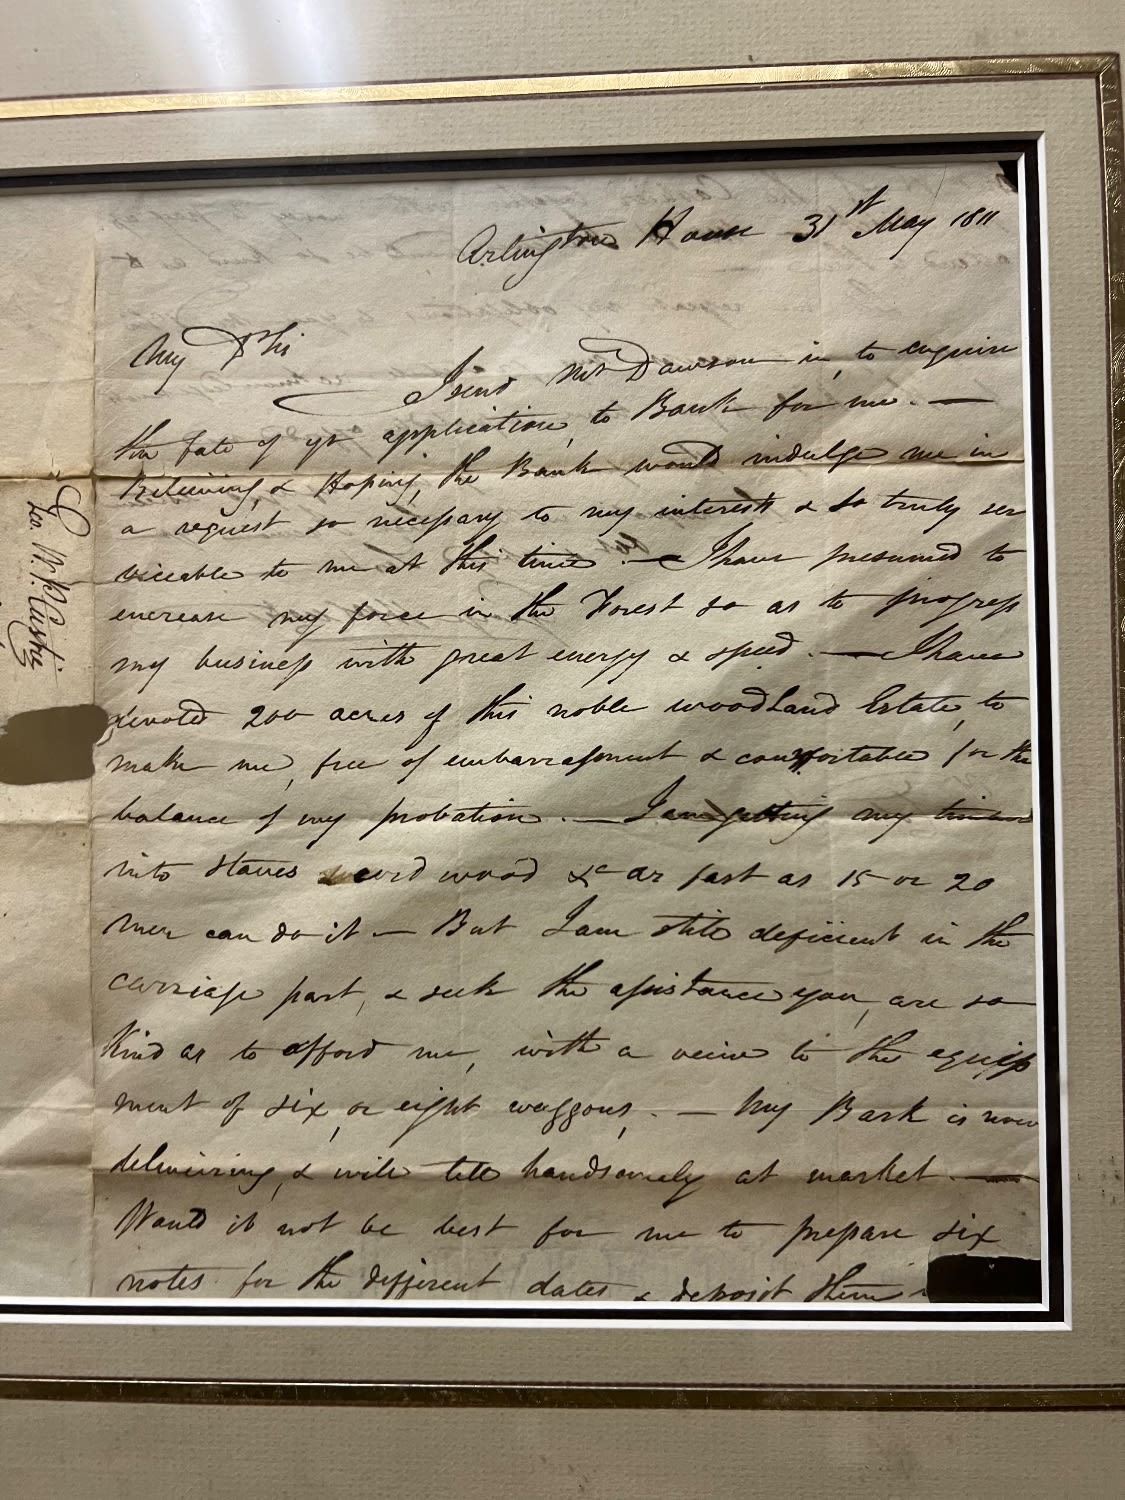 Arlington House 31st May 1811
My Dr Sir
I send Mr Dawson in, to enquire
the fate of yr application, to Bank for me. —
Believing, & Hoping, the Bank would indulge me in
a request so necessary to my interests & so truly ser
viceable to me at this time. — I have presumed to
encrease my force in the Forest so as to progress
my business with great energy & speed. — I have
devoted 200 acres of this noble woodland Estate, to
make me, free of embarrassment & comfortable for the
balance of my probation. — I am getting my timber
into staves cord wood &c as fast as 15 or 20
men can do it — But I am still deficient in the
carriage part, & seek the assistance you, are so
kind as to afford me, with a veiw to the equip
ment of six, or eight waggons, . — My Bark is now
delivering, & will tell handsomely at market. —
Would it not be best for me to prepare six
notes for the different dates & deposit them